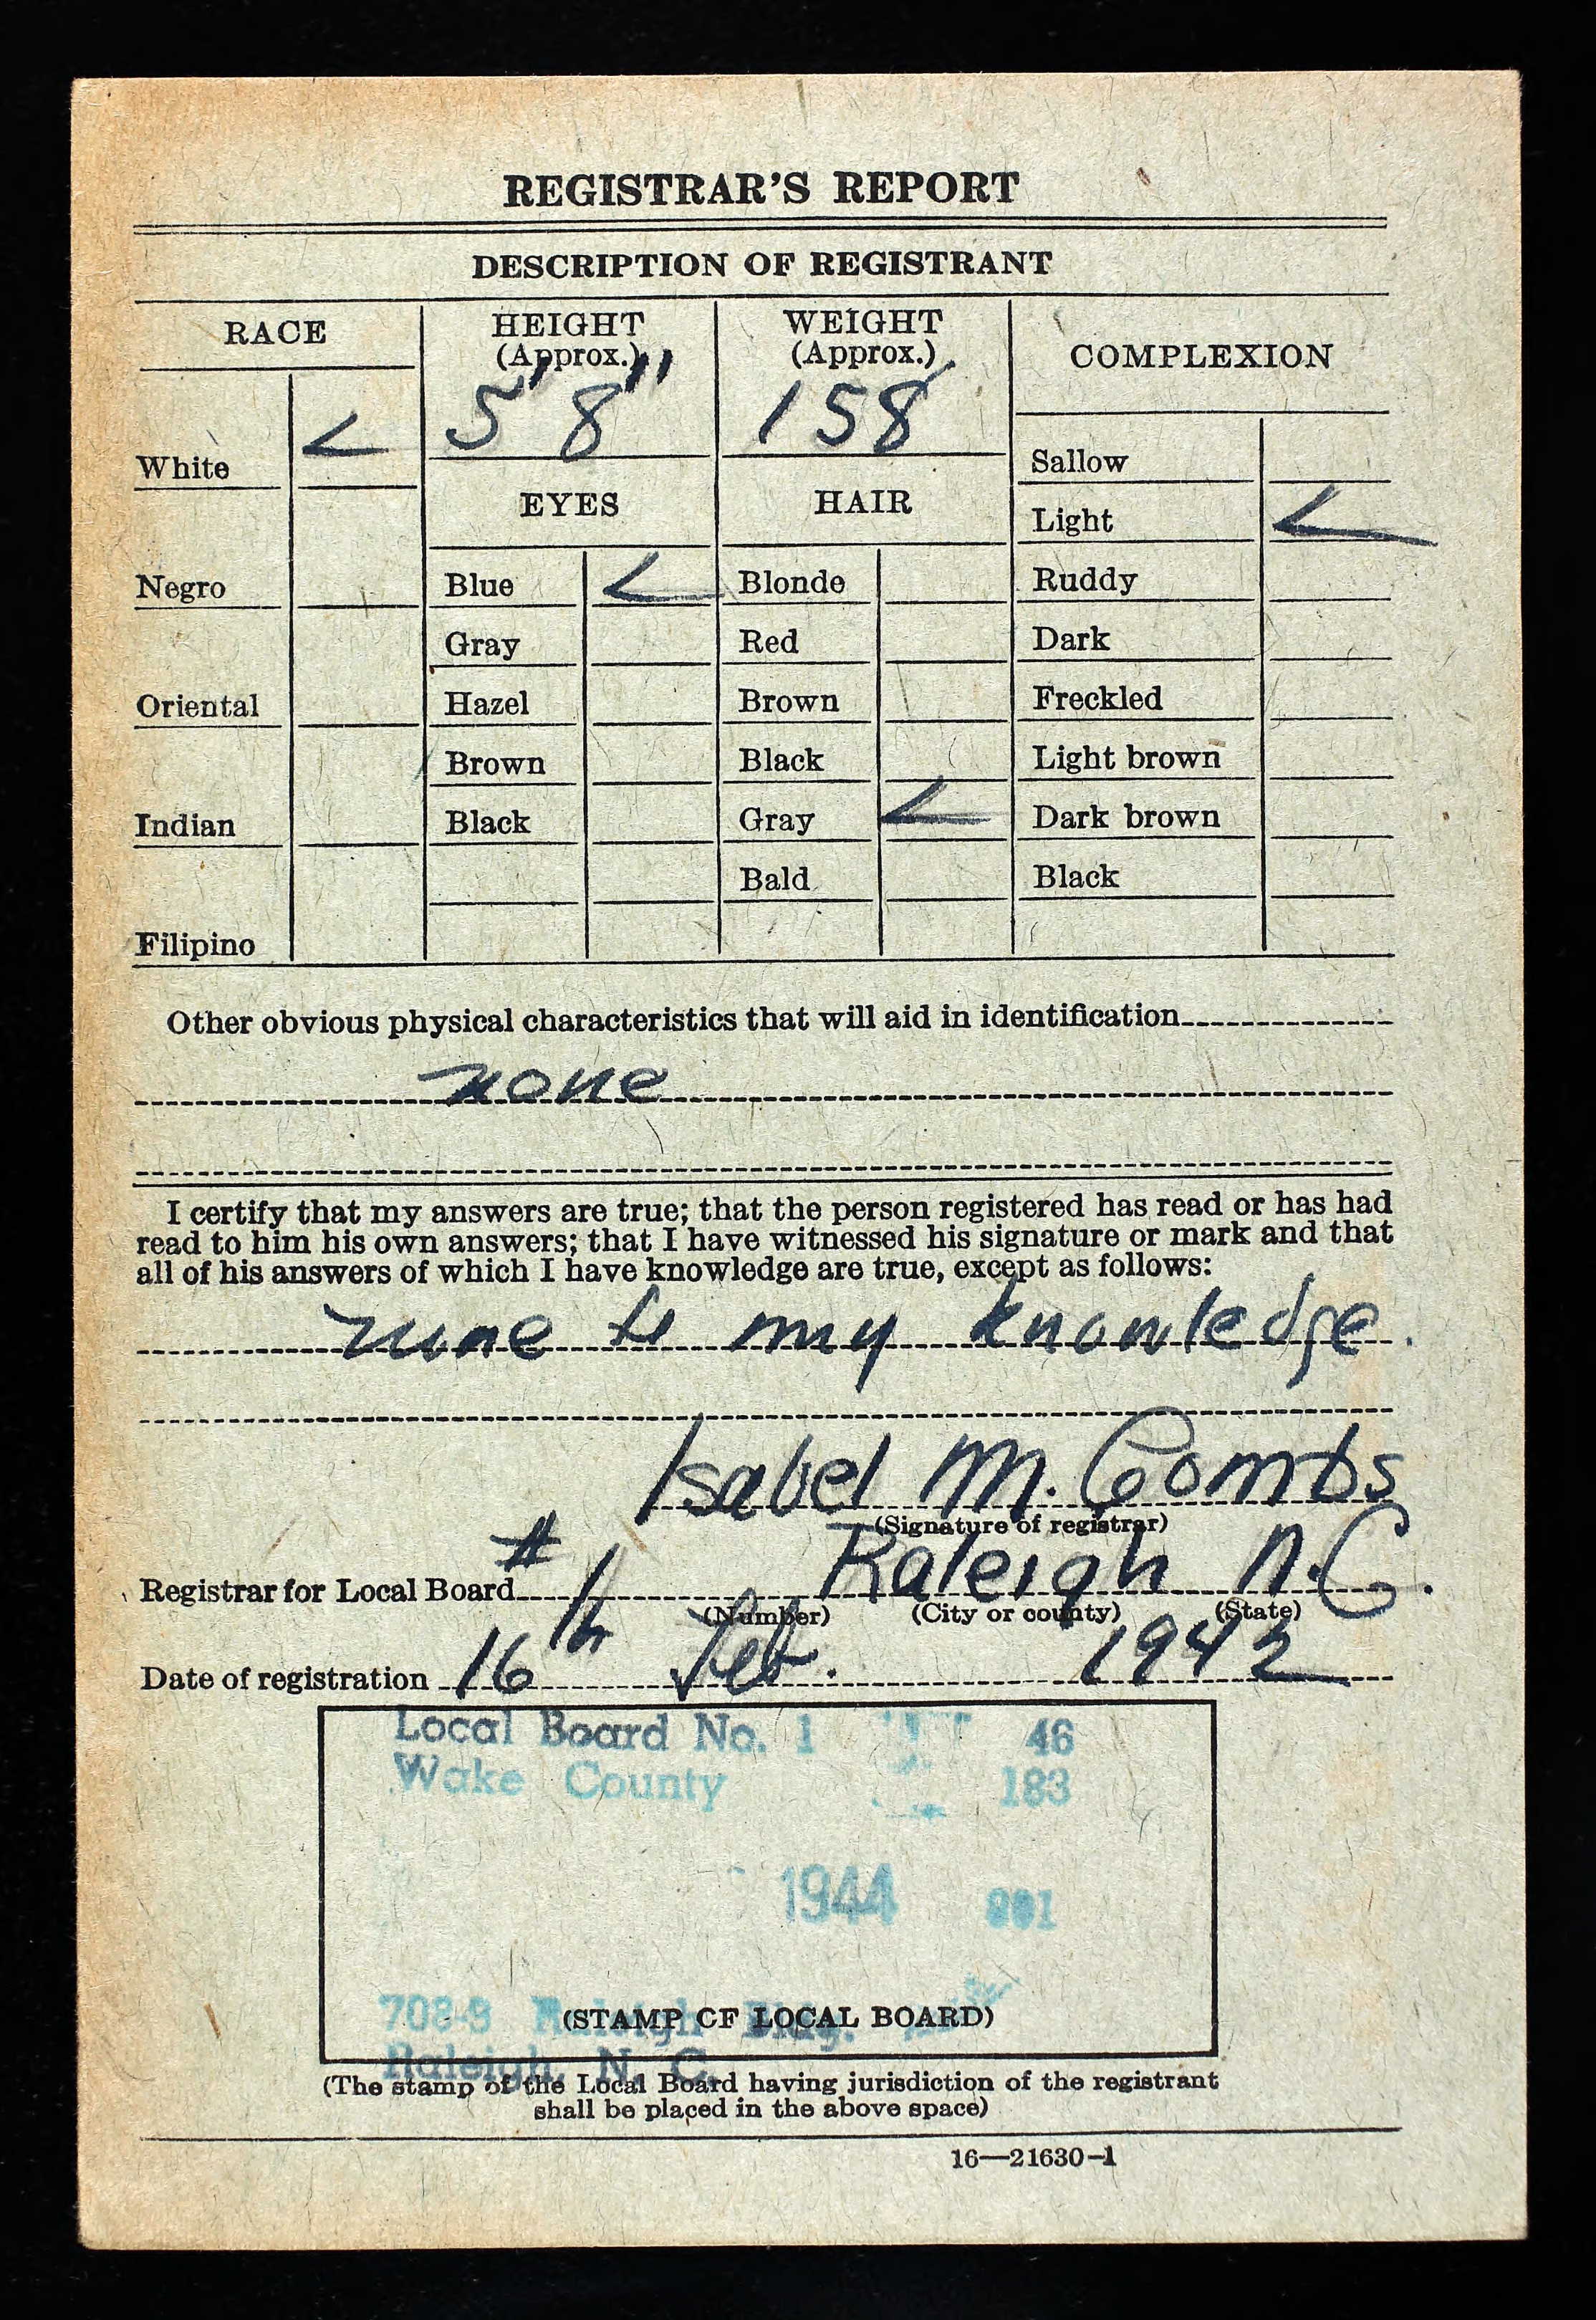 REGISTRAR'S REPORT
DESCRIPTION OF REGISTRANT
RACE
HEIGHT
(Approx.)
5' 8"
WEIGHT
(Approx.)
158
COMPLEXION
White
Negro
Oriental
Indian
Filipino
EYES
Blue
Gray
Hazel
Brown
Black
HAIR
Blonde
Red
Brown
Black
Gray
Bald
Sallow
Light
Ruddy
Dark
Freckled
Light brown
Dark brown
Black
Other obvious physical characteristics that will aid in identification
none
I certify that my answers are true; that the person registered has read or has had
read to him his own answers; that I have witnessed his signature or mark and that
all of his answers of which I have knowledge are true, except as follows:
none to my knowledge.
Isabel M. Combs
(Signature of registrar)
Registrar for Local Board #1 Raleigh N.C.
(Number) (City or county) (State)
Date of registration 16th Feb. 1942
Local Board No. 1 46
Wake County 183
1944
708-9 Raleigh Bldg.
(STAMP OF LOCAL BOARD)
Raleigh, N. C.
(The stamp of the Local Board having jurisdiction of the registrant
shall be placed in the above space)
16—21630-1